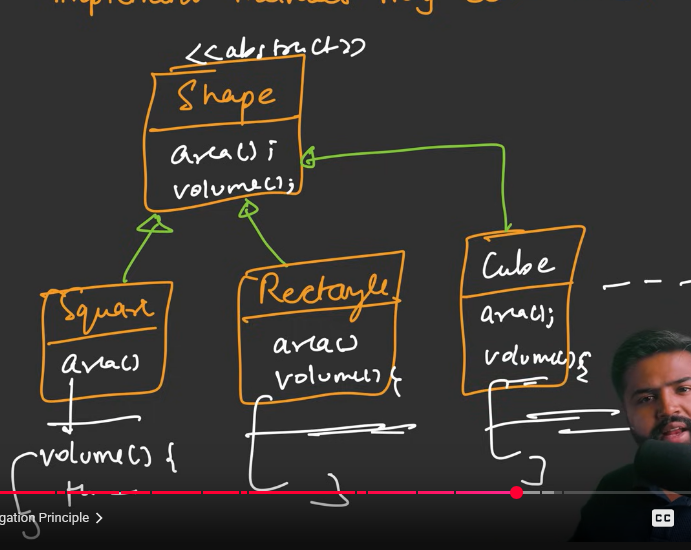 <<abstract>>
Shape
area();
volume();
Square
area()
volume() {
Rectangle
area()
volume() {
}
Cube
area();
volume() {
}
gation Principle >
CC